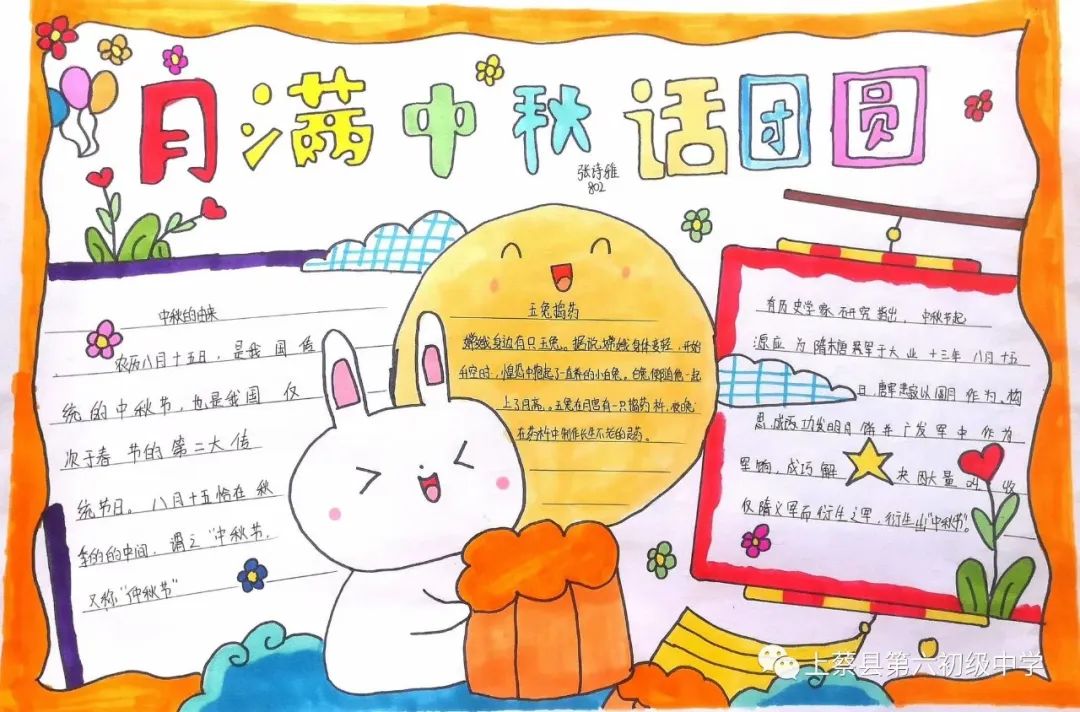 月满中秋话团圆
张诗雅
802
中秋的由来
农历八月十五日，是我国传
统的中秋节，也是我国仅
次于春节的第二大传
统节日。八月十五恰在秋
季的的中间，谓之"中秋节，
又称"仲秋节"
玉兔捣药
嫦娥身边有只玉兔。据说嫦娥身体变轻，开始
升空时，惶恐中抱起了一直养的小白兔。白兔便随她一起
上了月亮。玉兔在月宫有一只捣药杵，夜晚
在药杵中制作长生不老的灵药。
有历史学家研究指出，中秋节起
源应为隋末唐军于大业十三年八月十五
日，唐军裴寂以圆月作为构
思，成功发明月饼并广发军中作为
军饷，成巧解决因大量
仅隋义军而衍生之军，衍生出"中秋节"。
上蔡县第六初级中学